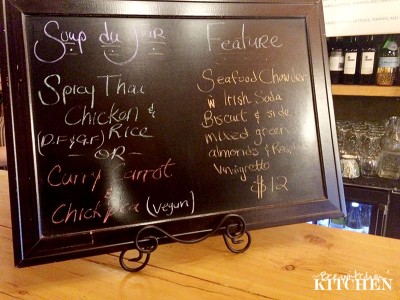 Soup du Jour
Spicy Thai
Chicken &
(D.F & G.F) Rice
-OR-
Curry Carrot
&
Chick Pea (vegan)
Feature
Seafood Chowder
w Irish Soda
Biscuit & side
mixed green
almonds &
Vinaigrette
$12
KITCHEN